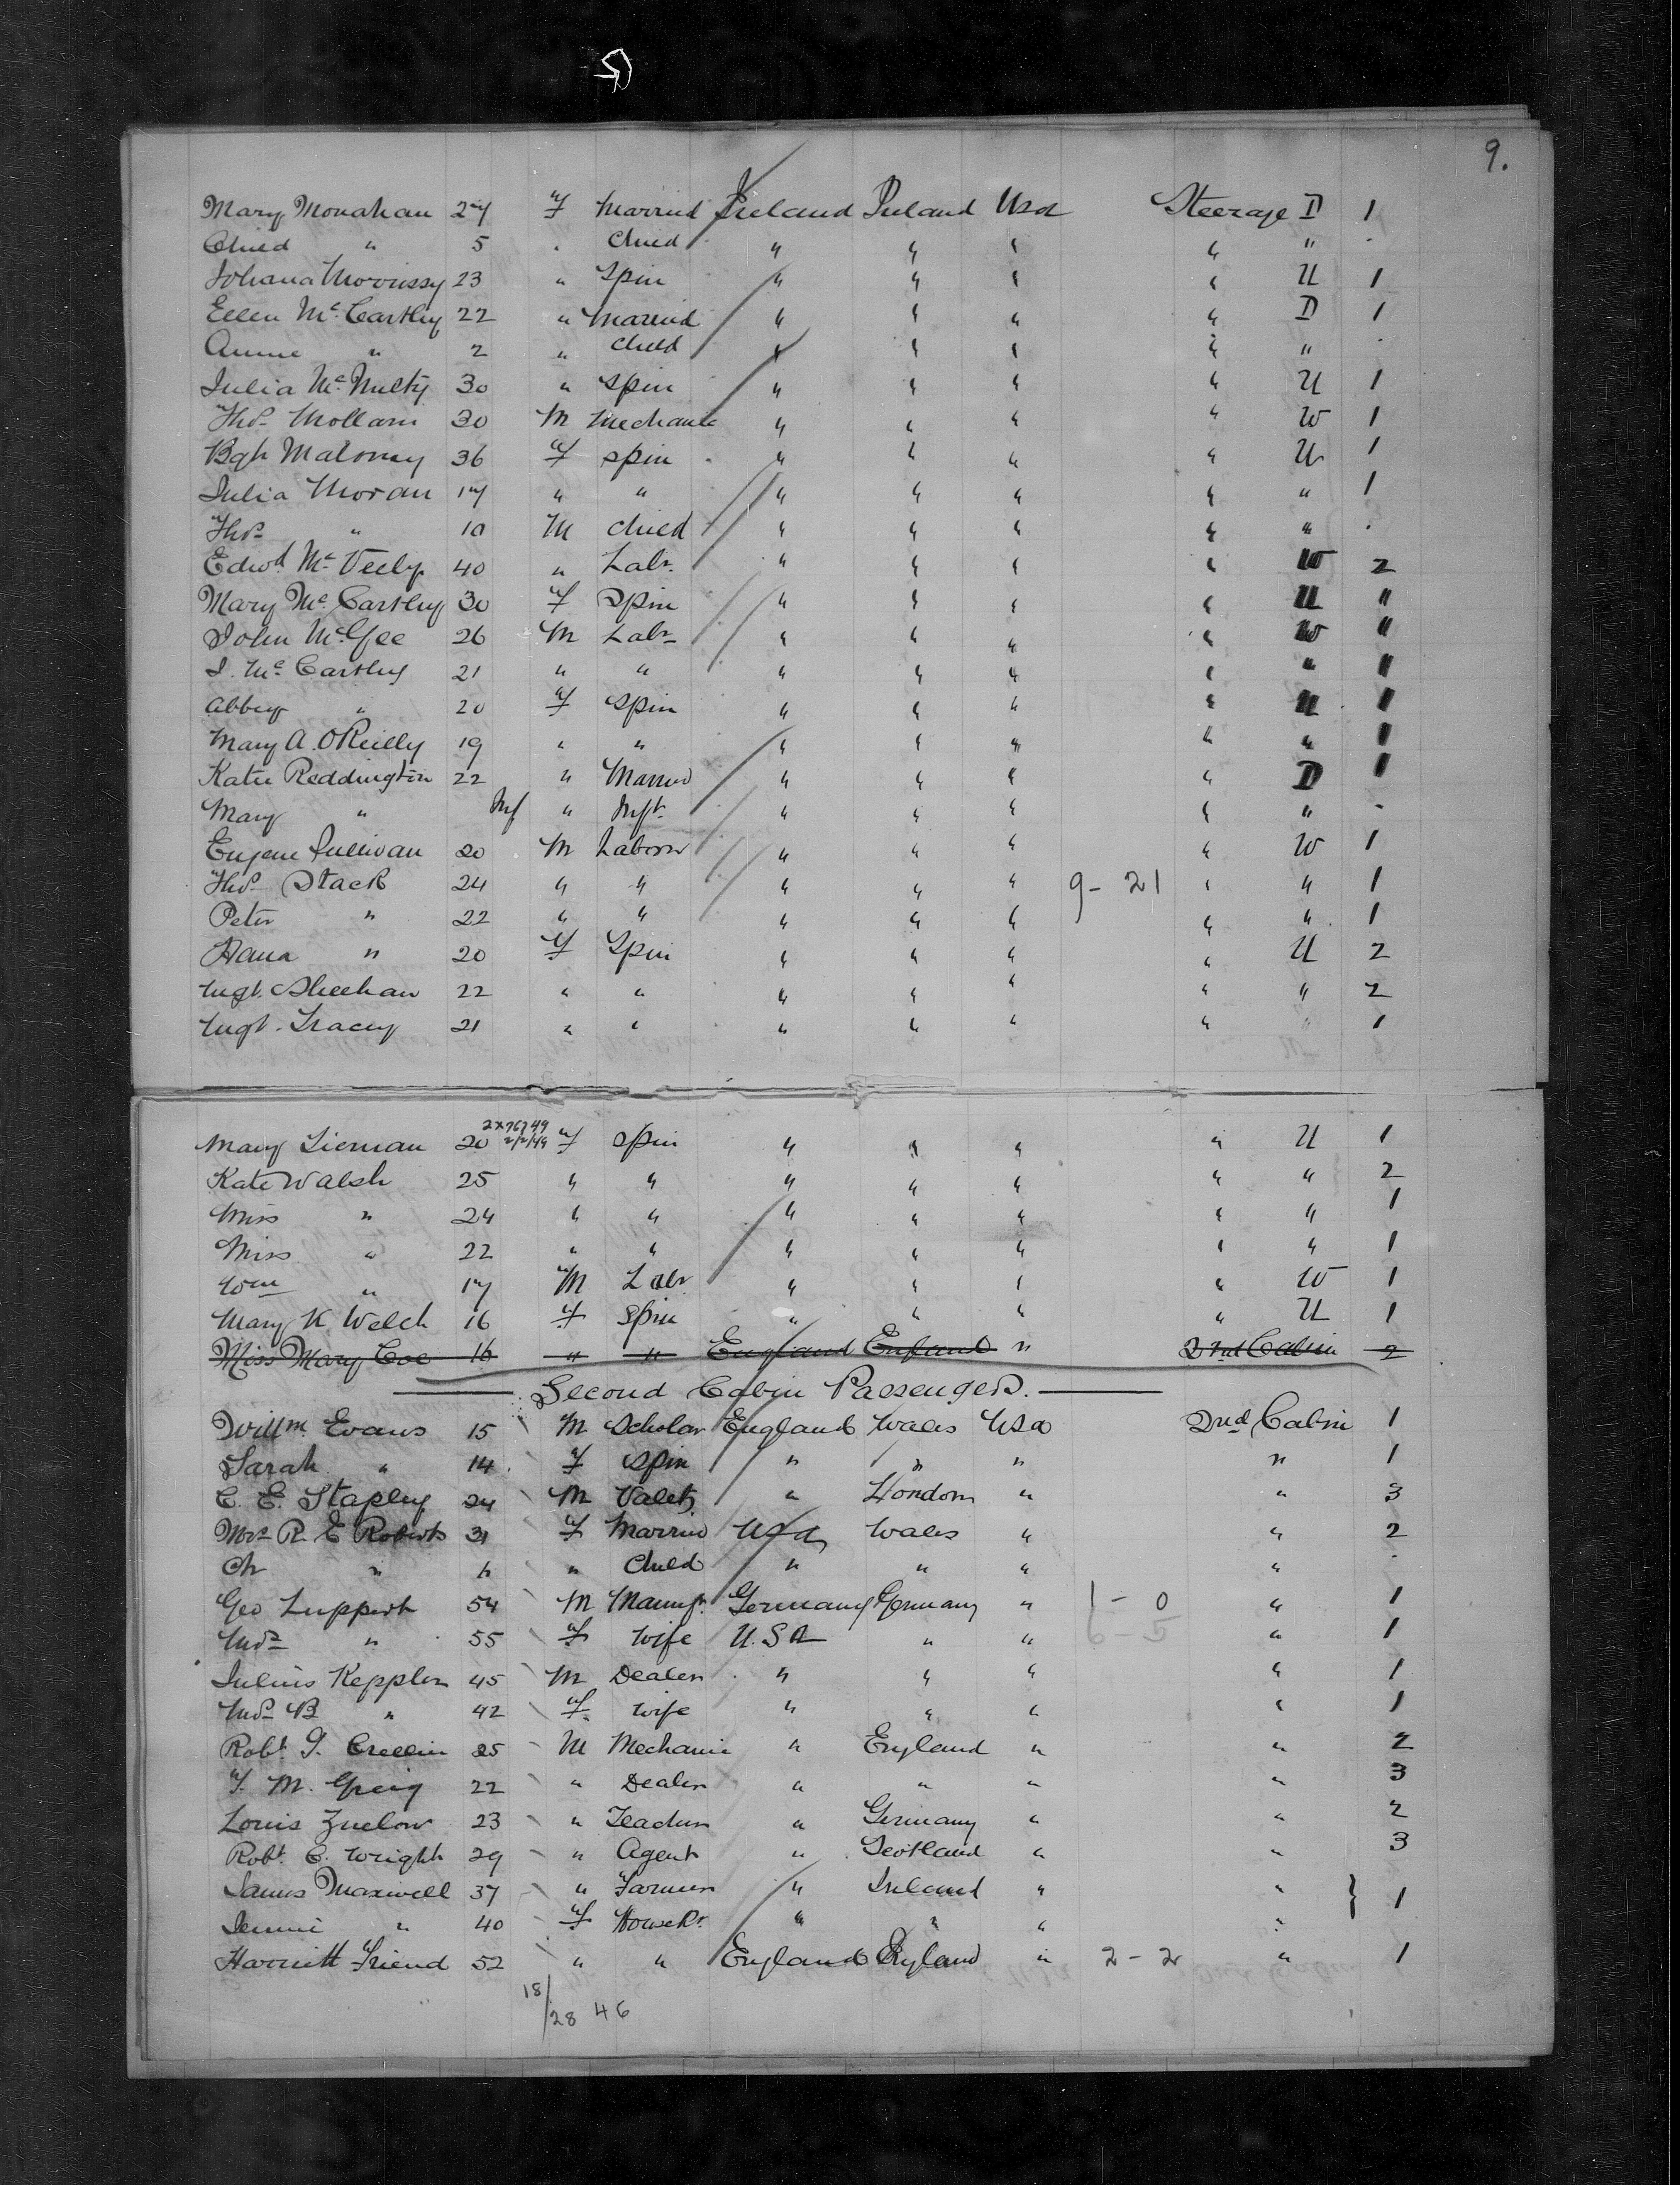 9.
Mary Monahan 27 F Married Ireland Ireland Usa Steerage D 1
Child " 5 " Child " " " " " .
Johana Morrissy 23 " Spin " " " " U 1
Ellen Mc Carthy 22 " Married " " " " D 1
Annie " 2 " Child " " " " " .
Julia Mc Nulty 30 " Spin " " " " U 1
Thos Mollam 30 M Mechanic " " " " W 1
Bgt Maloney 36 F Spin " " " " U 1
Julia Moran 17 " " " " " " " 1
Thos " 10 M Child " " " " " .
Edwd Mc Veely 40 " Labr " " " " W 2
Mary Mc Carthy 30 F Spin " " " " U "
John McGee 26 M Labr " " " " W "
J. Mc Carthy 21 " " " " " " " 1
Abbey " 20 F Spin " " " " U 1
Mary A. OReilly 19 " " " " " " " 1
Katie Reddington 22 " Married " " " " D 1
Mary " Inf " Inft " " " " " -
Eugene Sullivan 20 M Laborer " " " " W 1
Thos Stack 24 " " " " " 9- 21 " " 1
Peter " 22 " " " " " " " 1
Hana " 20 F Spin " " " " U 2
Mgt. Sheehan 22 " " " " " " " 2
Mgt. Tracey 21 " " " " " " " 1
Mary Tiernan 20 F Spin " " " " U 1
Kate Walsh 25 " " " " " " " 2
Miss " 24 " " " " " " " 1
Miss " 22 " " " " " " " 1
Wm " 17 M Labr " " " " W 1
Mary K. Welch 16 F Spin " " " " U 1
Miss Mary Coe 16 " " England England " 2nd Cabin 2
Second Cabin Passengers.
Willm Evans 15 M Scholar England Wales Usa 2nd Cabin 1
Sarah " 14 F Spin " " " " 1
C. E. Stapley 24 M Valet " London " " 3
Mrs R E Roberts 31 F Married Usa Wales " " 2
Ch " " Child " " " " .
Geo Luppert 54 M Manufr. Germany Germany " 1 - 0 " 1
Mrs " 55 F Wife U.S.A " " " 1
Julius Keppler 45 M Dealer " " " " 1
Mrs B " 42 F Wife " " " " 1
Robt. G. Creein 25 M Mechanic " England " " 2
T. M. Greig 22 " Dealer " " " " 3
Louis Zuelow 23 " Teacher " Germany " " 2
Robt. C. Wright 29 " Agent " Scotland " " 3
James Maxwell 37 " Farmer " Ireland " " } 1
Jennie " 40 F HouseKr " " " "
Harriett Friend 52 " " England England " 2 - 2 " 1
18/28 46